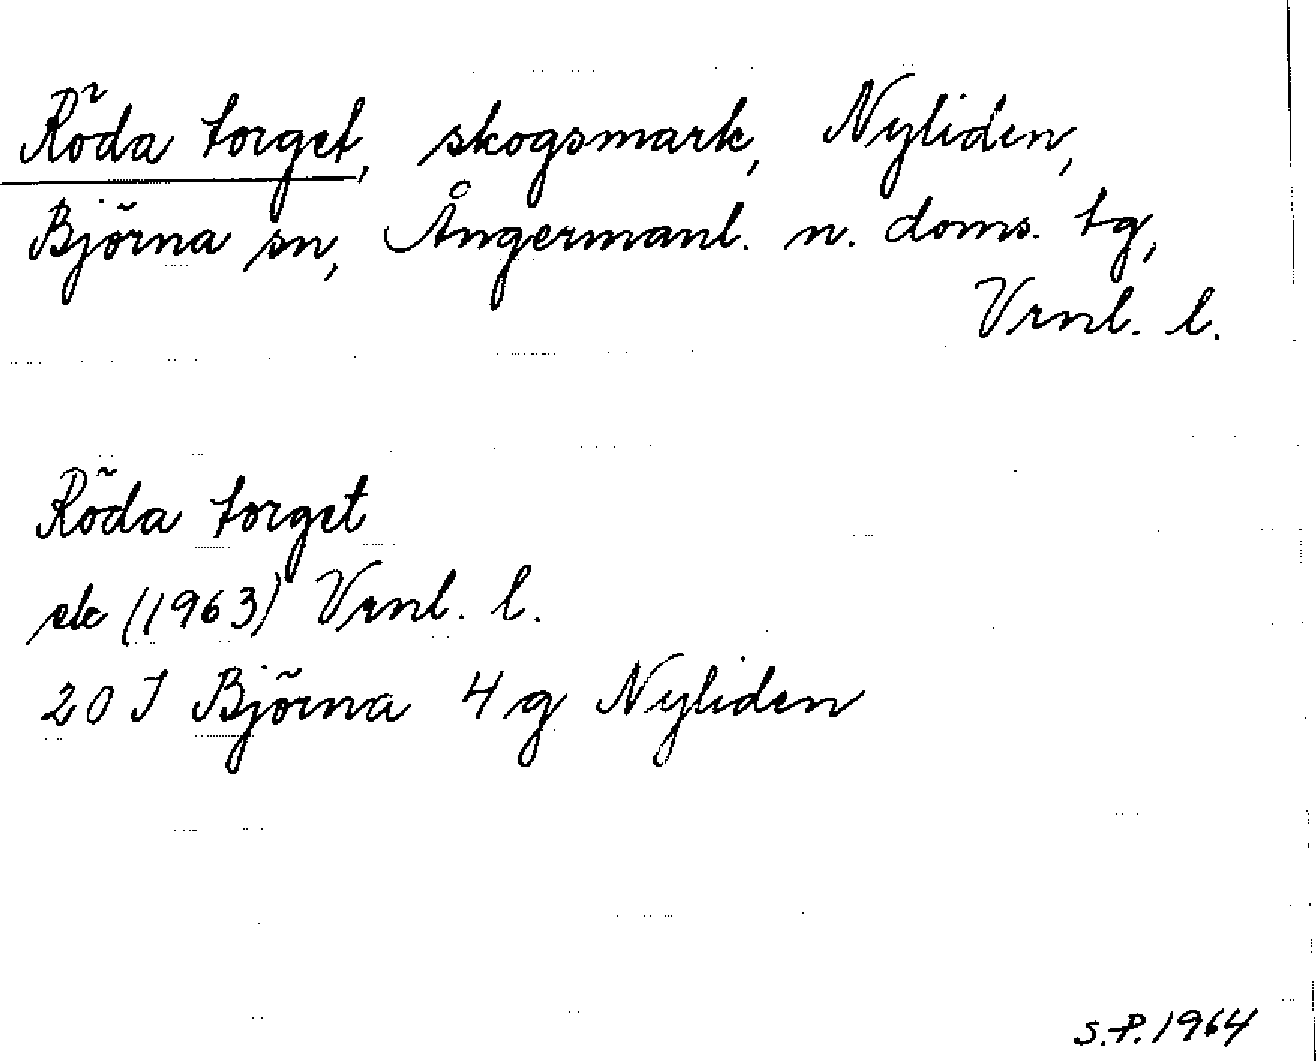 Röda torget, skogsmark, Nyliden,
Björna sn, Ångermanl. n. doms. tg,
Vrnl. l.
Röda torget
ek (1963) Vrnl. l.
20 J Björna 4 g Nyliden
S.P. 1964